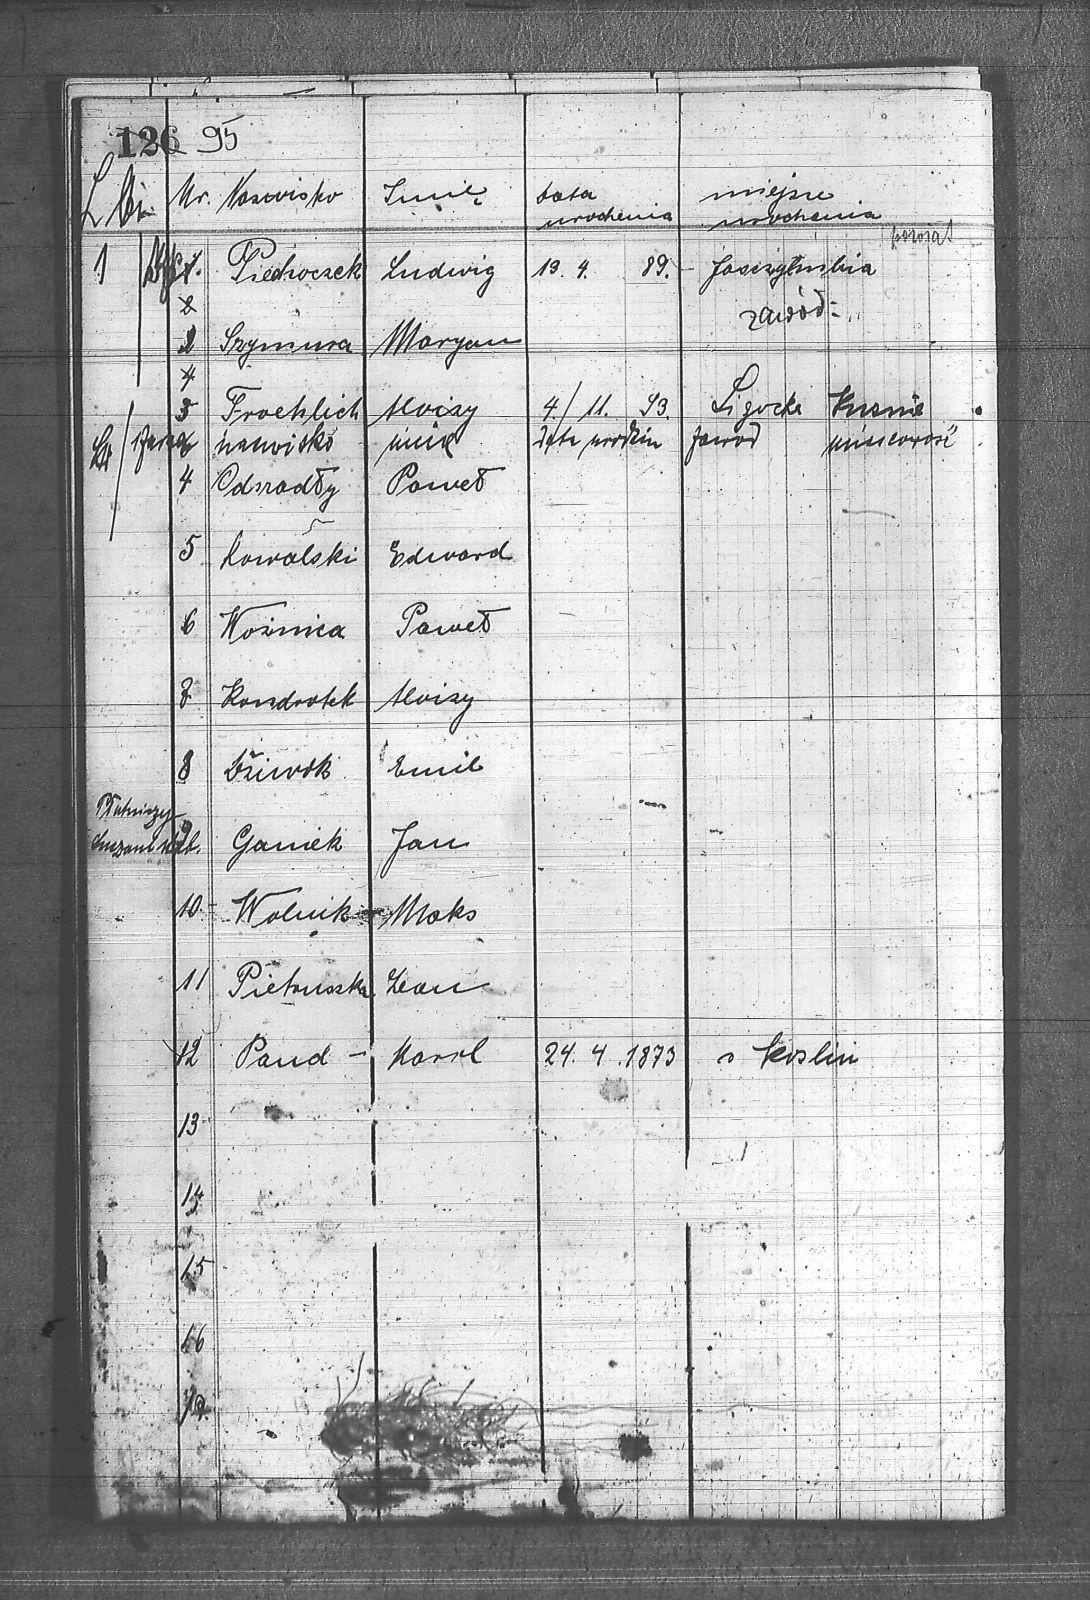 126 95
Nr. Nazwisko Imię data miejsce
urodzenia urodzenia
1 Piechoczek Ludwig 19. 4. 89. -
zawód:
2 Szymura Maryan
4
3 Froehlich Aloizy 4/11. 93. Ligocka Kuźnia
nazwisko imię data urodzin zawód miejscowość
4 Odszadły Paweł
5 Kowalski Edward
6 Woźnica Paweł
7 Kondrotek Aloizy
8 Emil
9 Ganiek Jan
10 - Wolnik - Maks
11 Pietruszka Leon
12 Pand - Karol 24. 4. 1873 Koslin
13
14
15
16